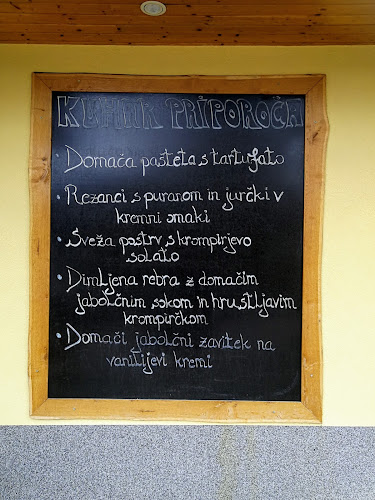 KUHAR PRIPOROČA
• Domača pašteta s tartufato
• Rezanci s puranom in jurčki v
kremni omaki
• Sveža postrv s krompirjevo
solato
• Dimljena rebra z domačim
jabolčnim sokom in hrustljavim
krompirčkom
• Domači jabolčni zavitek na
vanilijevi kremi